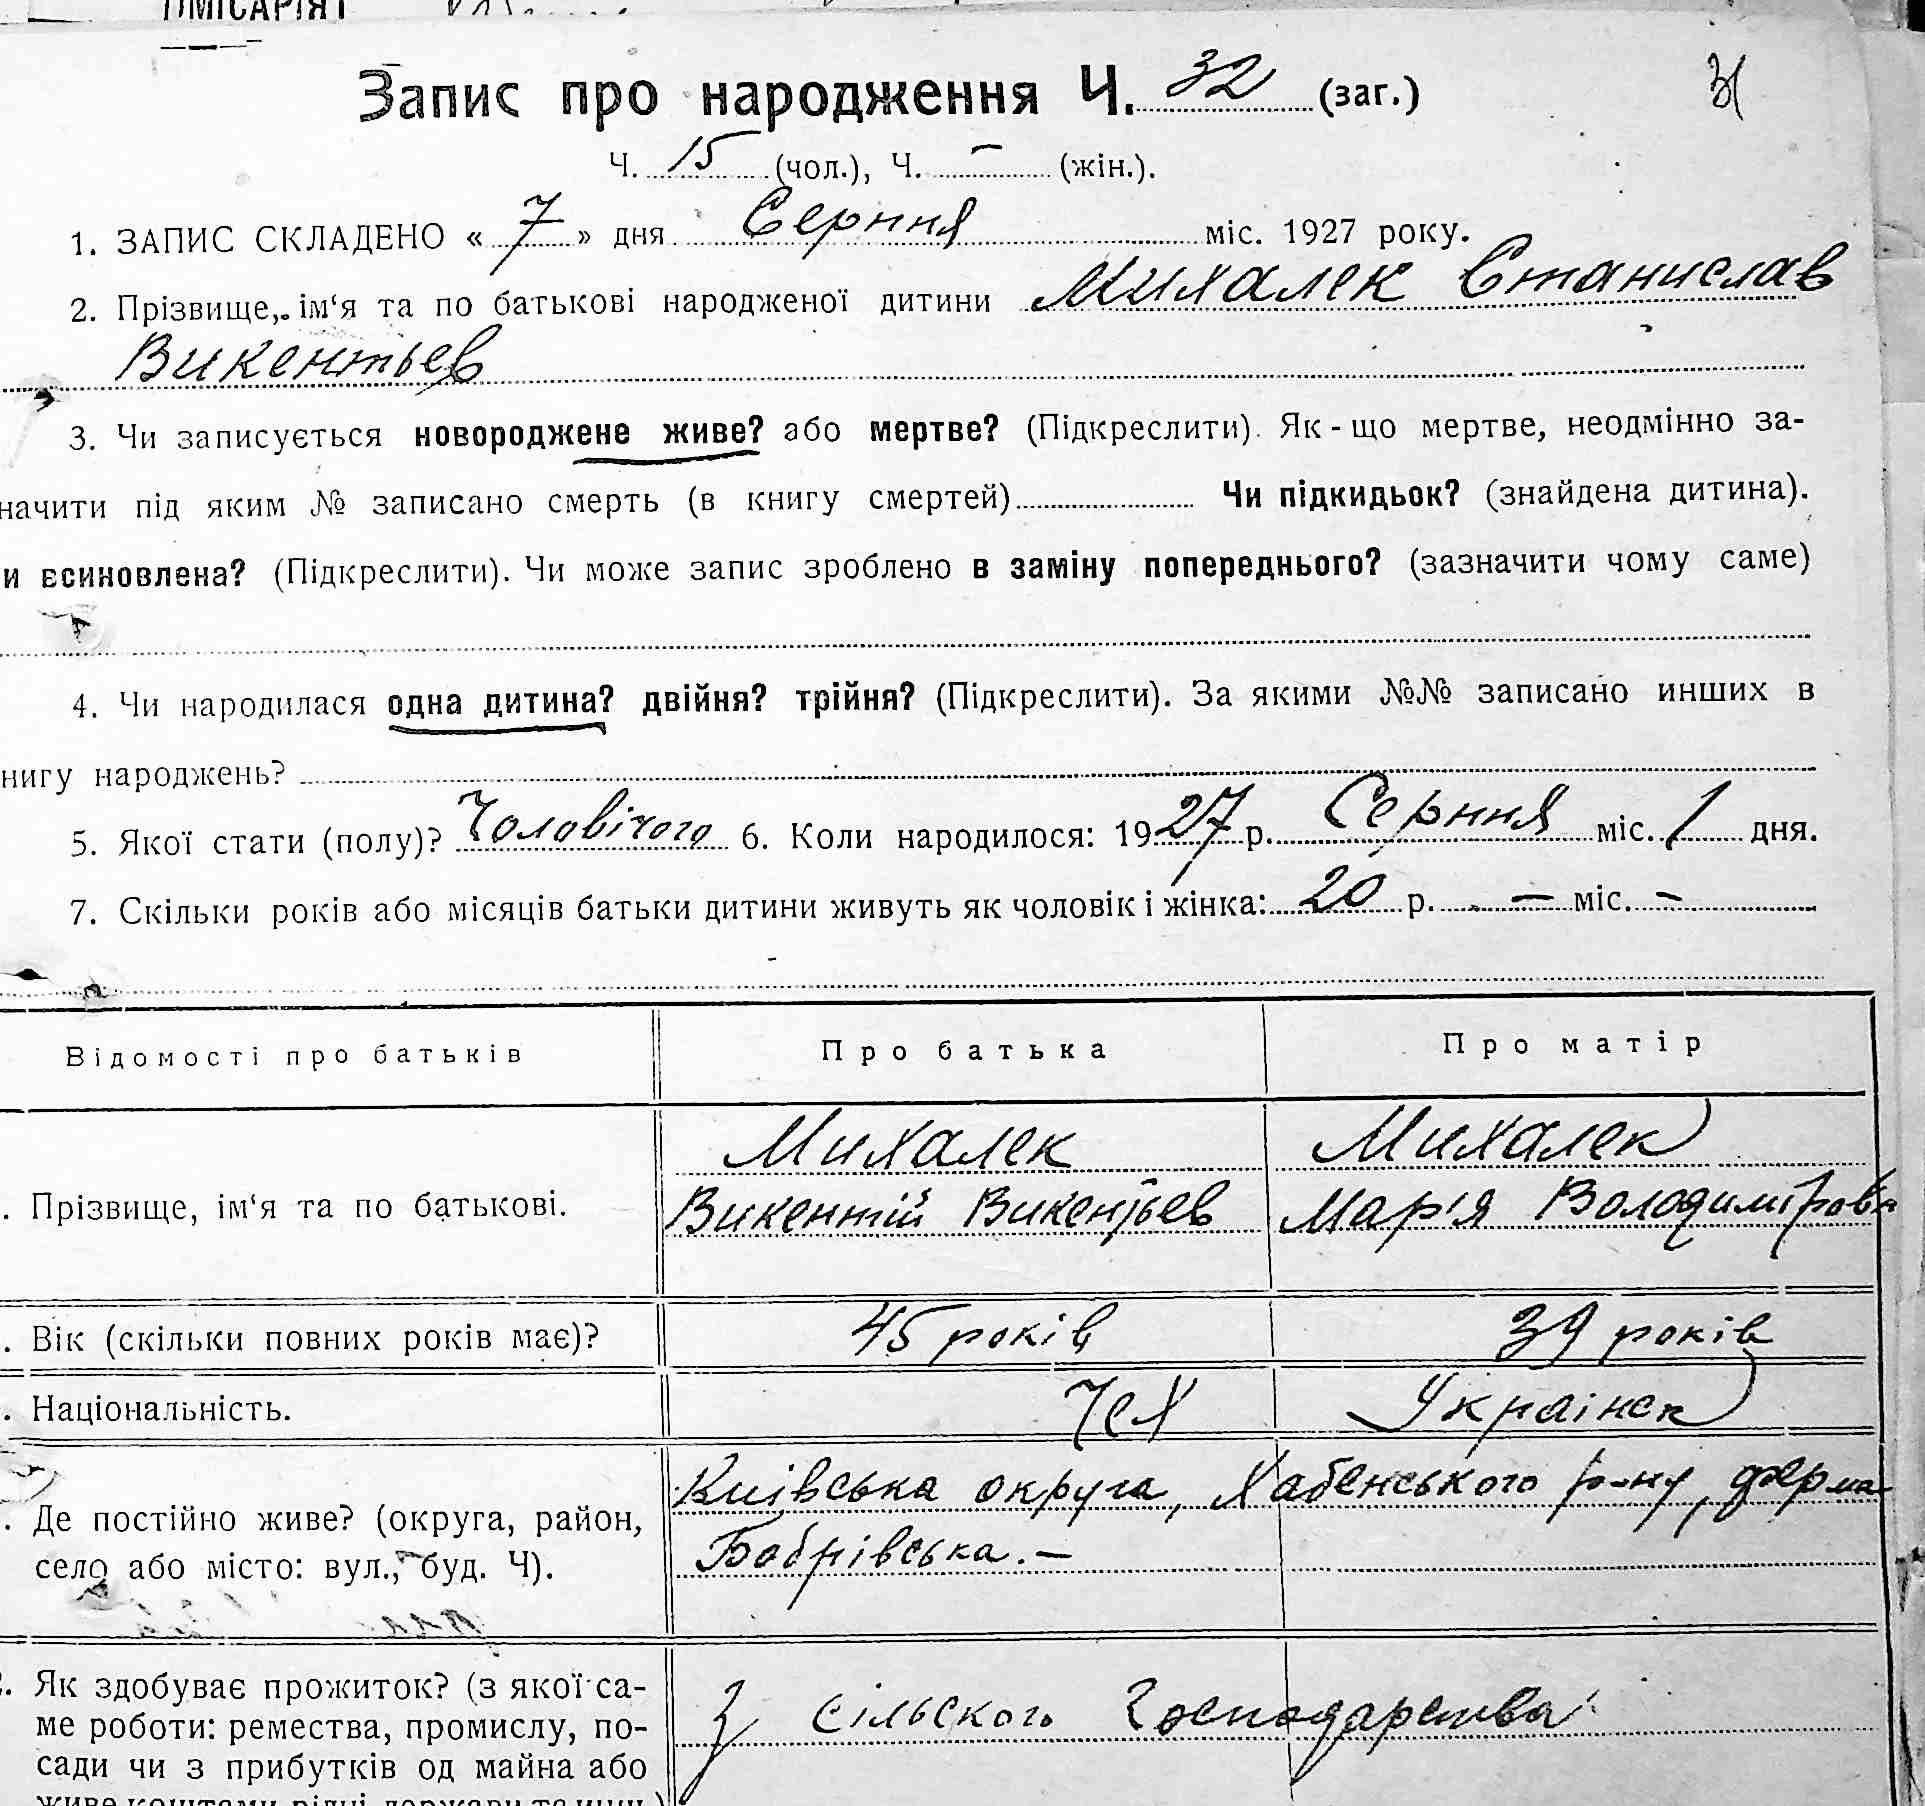 Запис про народження Ч. 32 (заг.)
31
Ч. 15 (чол.), Ч. — (жін.).
1. ЗАПИС СКЛАДЕНО « 7 » дня Серпня міс. 1927 року.
2. Прізвище, ім'я та по батькові народженої дитини Михалек Станислав
Викентьев
3. Чи записується новороджене живе? або мертве? (Підкреслити). Як-що мертве, неодмінно за-
начити під яким № записано смерть (в книгу смертей) Чи підкидьок? (знайдена дитина).
и всиновлена? (Підкреслити). Чи може запис зроблено в заміну попереднього? (зазначити чому саме)
4. Чи народилася одна дитина? двійня? трійня? (Підкреслити). За якими №№ записано инших в
нигу народжень?
5. Якої стати (полу)? Чоловічого 6. Коли народилося: 1927 р. Серпня міс. 1 дня.
7. Скільки років або місяців батьки дитини живуть як чоловік і жінка: 20 р. — міс. —
Відомості про батьків Про батька Про матір
Михалек Михалек
. Прізвище, ім'я та по батькові. Викентій Викентьев Марія Володиміровн
. Вік (скільки повних років має)? 45 років 39 років
. Національність. Чех Українск
Київська округа, Хабенського р-ну, ферма
. Де постійно живе? (округа, район,
село або місто: вул., буд. Ч). Бобрівська. —
. Як здобуває прожиток? (з якої са-
ме роботи: ремества, промислу, по- З сільского Господарства
сади чи з прибутків од майна або
живе коштами рідні держави та инш.)